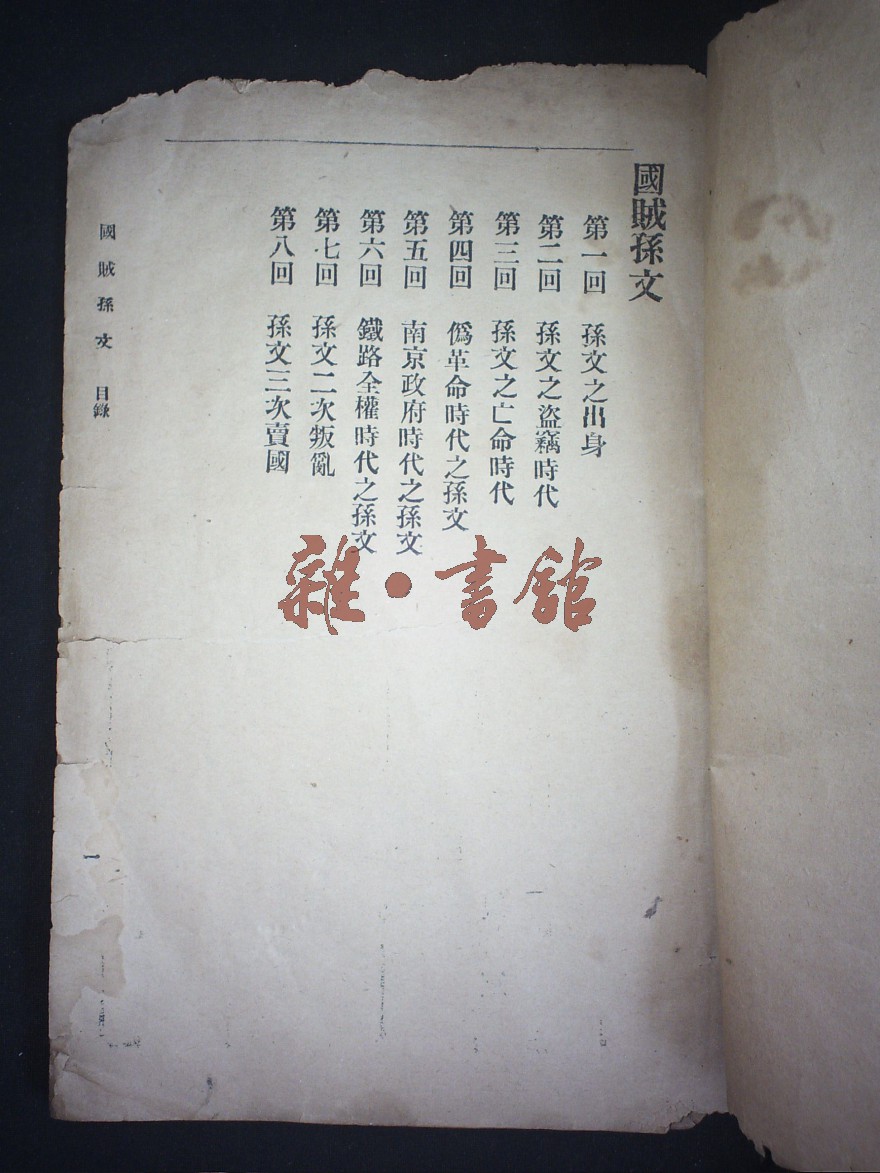 國賊孫文
第一回 孫文之出身
第二回 孫文之盜竊時代
第三回 孫文之亡命時代
第四回 僞革命時代之孫文
第五回 南京政府時代之孫文
第六回 鐵路全權時代之孫文
第七回 孫文二次叛亂
第八回 孫文三次賣國
國賊孫文 目錄
一
雜·書館